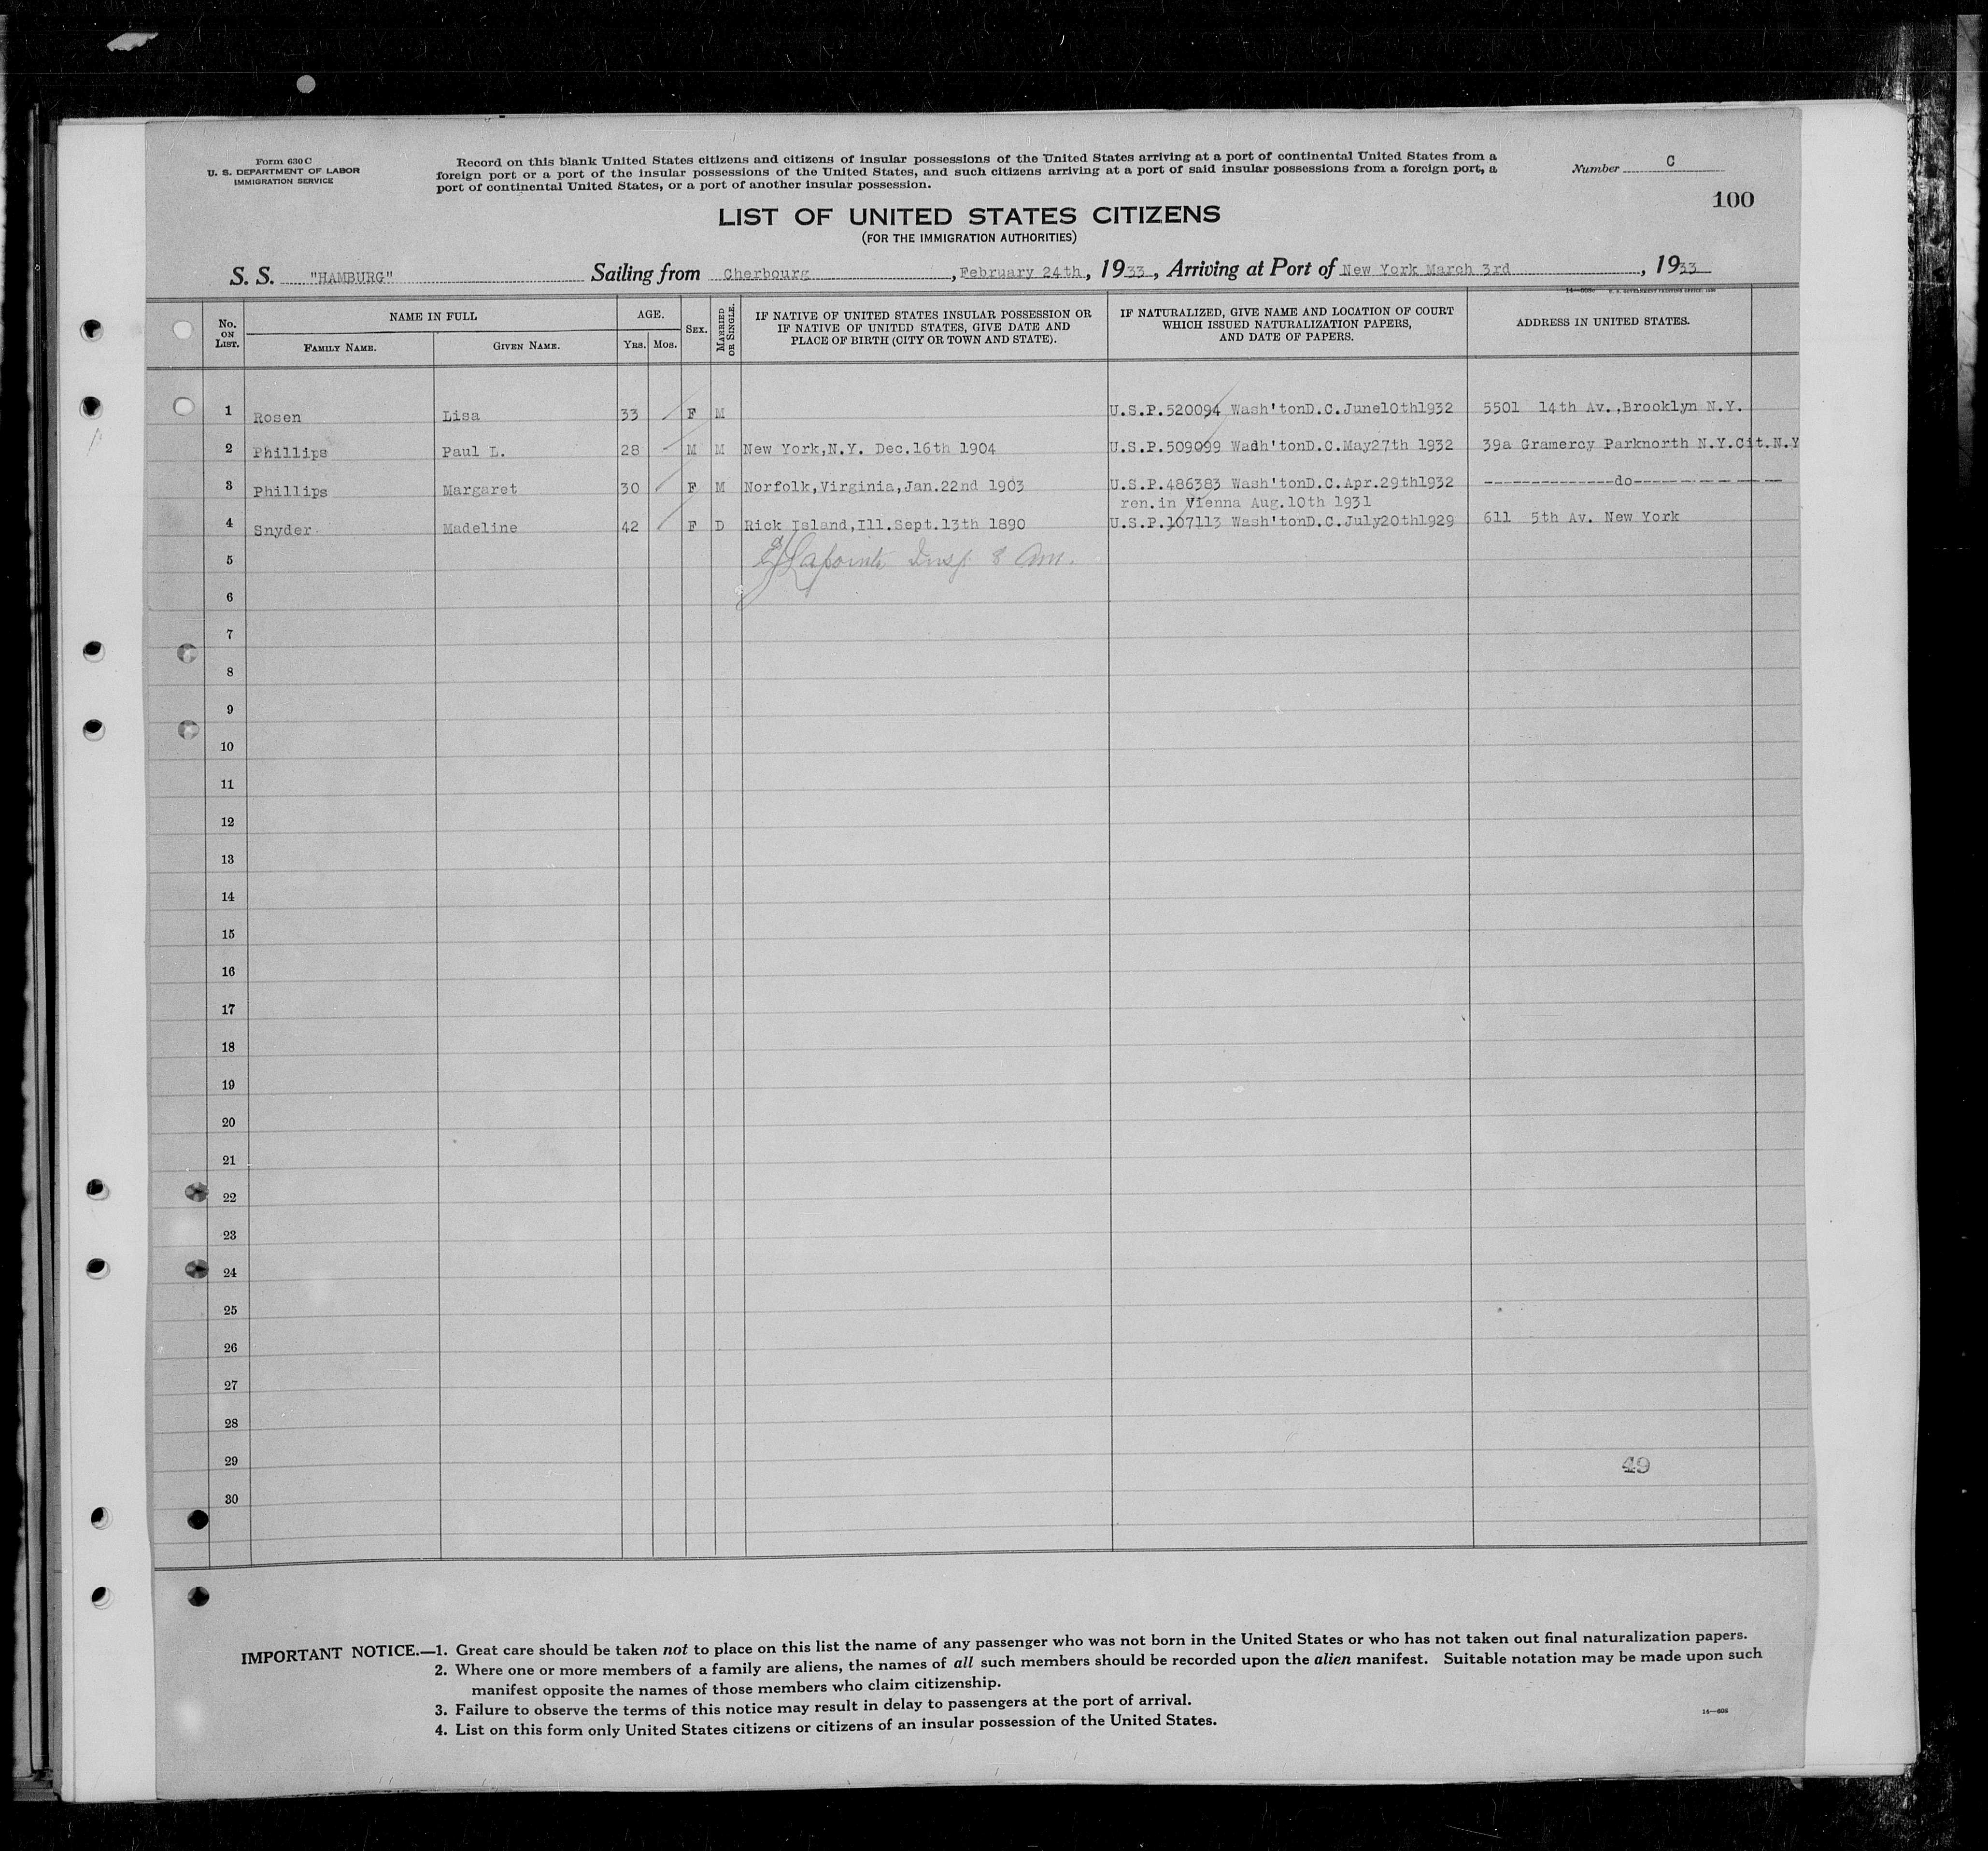 Form 630 C
U. S. DEPARTMENT OF LABOR
IMMIGRATION SERVICE
Record on this blank United States citizens and citizens of insular possessions of the United States arriving at a port of continental United States from a
foreign port or a port of the insular possessions of the United States, and such citizens arriving at a port of said insular possessions from a foreign port, a
port of continental United States, or a port of another insular possession.
Number C
100
LIST OF UNITED STATES CITIZENS
(FOR THE IMMIGRATION AUTHORITIES)
S. S. "HAMBURG" Sailing from Cherbourg, February 24th, 1933, Arriving at Port of New York March 3rd, 1933
No. ON LIST. NAME IN FULL AGE. SEX. MARRIED OR SINGLE. IF NATIVE OF UNITED STATES INSULAR POSSESSION OR IF NATIVE OF UNITED STATES, GIVE DATE AND PLACE OF BIRTH (CITY OR TOWN AND STATE). IF NATURALIZED, GIVE NAME AND LOCATION OF COURT WHICH ISSUED NATURALIZATION PAPERS, AND DATE OF PAPERS. ADDRESS IN UNITED STATES.
FAMILY NAME. GIVEN NAME. YRS. MOS.
1 Rosen Lisa 33 F M U.S.P.520094 Wash'tonD.C.June10th1932 5501 14th Av.,Brooklyn N.Y.
2 Phillips Paul L. 28 M M New York,N.Y. Dec.16th 1904 U.S.P.509099 Wadh'tonD.C.May27th 1932 39a Gramercy Parknorth N.Y.Cit.N.Y
3 Phillips Margaret 30 F M Norfolk,Virginia,Jan.22nd 1903 U.S.P.486383 Wash'tonD.C.Apr.29th1932 --------------do----------------
ren.in Vienna Aug.10th 1931
4 Snyder Madeline 42 F D Rick Island,Ill.Sept.13th 1890 U.S.P.107113 Wash'tonD.C.July20th1929 611 5th Av. New York
5 Lapointe Insp. 8 Am.
6
7
8
9
10
11
12
13
14
15
16
17
18
19
20
21
22
23
24
25
26
27
28
29 49
30
IMPORTANT NOTICE.—1. Great care should be taken not to place on this list the name of any passenger who was not born in the United States or who has not taken out final naturalization papers.
2. Where one or more members of a family are aliens, the names of all such members should be recorded upon the alien manifest. Suitable notation may be made upon such
manifest opposite the names of those members who claim citizenship.
3. Failure to observe the terms of this notice may result in delay to passengers at the port of arrival.
4. List on this form only United States citizens or citizens of an insular possession of the United States.